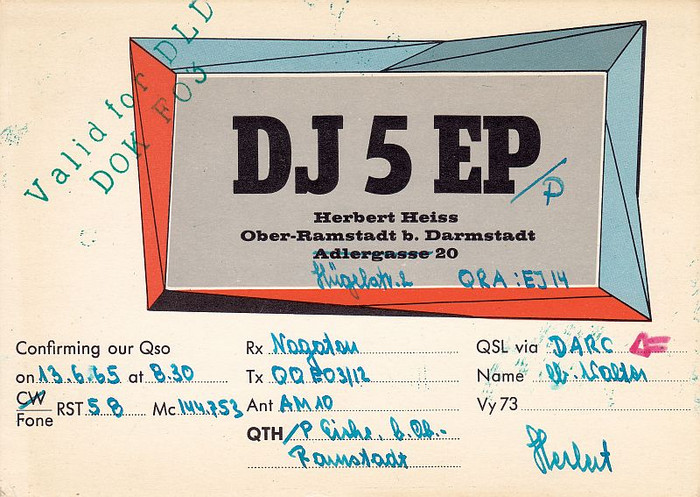 Valid for DLD
DOK F03
DJ 5 EP/P
Herbert Heiss
Ober-Ramstadt b. Darmstadt
Adlergasse 20
Hügelstr. 2 QRA: EJ14
Confirming our Qso
on 13.6.65 at 8.30
CW
Fone RST 58 Mc 144.753
Rx Nogoton
Tx QQE03/12
Ant AM10
QTH /P Eiche, b. Ob.-
Ramstadt
QSL via DARC
Name Walter
Vy 73
Herbert